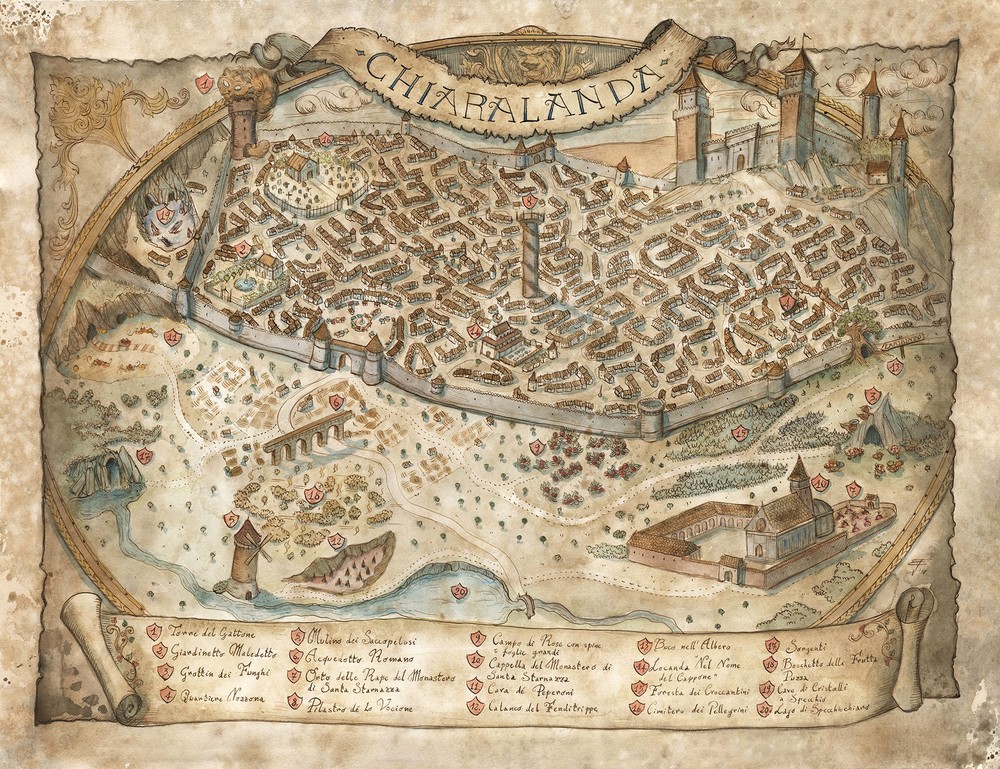 CHIARALANDA
1
16
8
19
2
11
6
13
3
9
15
17
18
10
7
5
12
20
1 Torre del Gattone
2 Giardinetto Maledetto
3 Grottin dei Funghi
4
5 Mulino dei Saccopelosi
6 Acquedotto Romano
7 Orto delle Rape del Monastero
di Santa Starnazza
8 Pilastro de Lo Vocione
9 Campo di Rose con spine
e foglie grandi
10 Cappella del Monastero di
Santa Starnazza
11 Cava di Peperoni
12 Calanco del Fenditrippe
13 Buco nell'Albero
14 Locanda "Nel Nome
del Cappone"
15 Foresta dei Croccantini
16 Cimitero dei Pellegrini
17 Sorgenti
18 Boschetto della Frutta
Pazza
19 Cava di Cristalli
a Specchio
20 Lago di Specchiochiaro